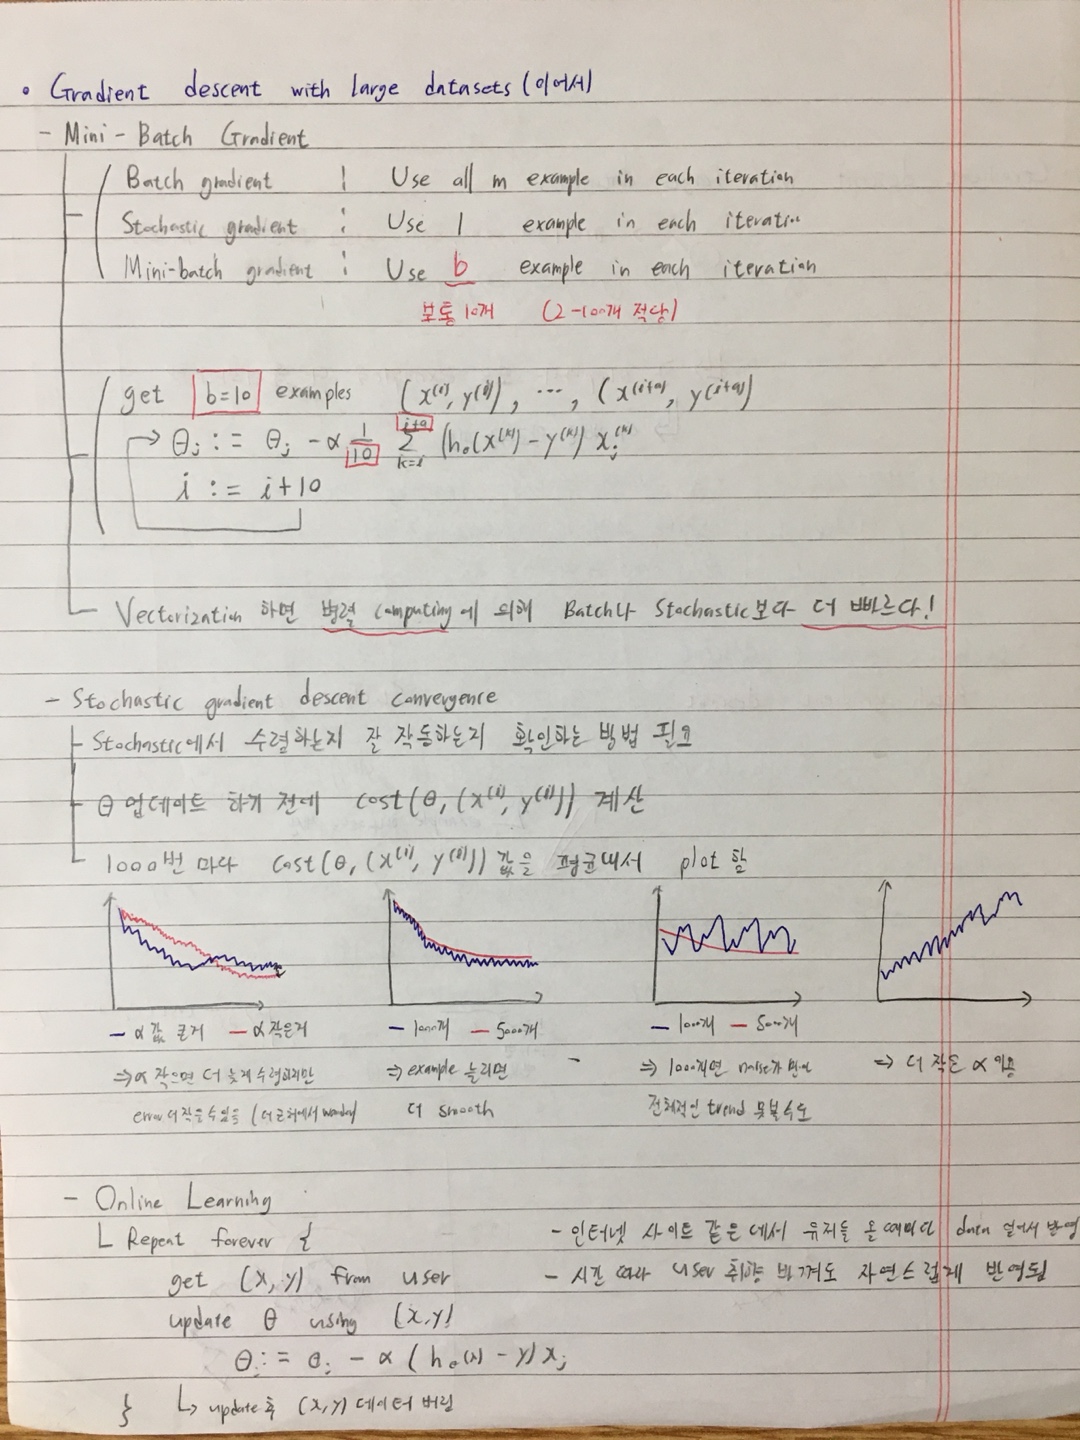 • Gradient descent with large datasets (이어서)
- Mini-Batch Gradient
Batch gradient : Use all m example in each iteration
Stochastic gradient : Use 1 example in each iteration
Mini-batch gradient : Use b example in each iteration
보통 10개 (2-100개 적당)
get b=10 examples (x⁽ⁱ⁾, y⁽ⁱ⁾), ⋯, (x⁽ⁱ⁺⁹⁾, y⁽ⁱ⁺⁹⁾)
θⱼ := θⱼ - α 1/10 Σ_{k=i}^{i+9} (hθ(x⁽ᵏ⁾) - y⁽ᵏ⁾) xⱼ⁽ᵏ⁾
i := i+10
Vectorization 하면 병렬 computing에 의해 Batch나 Stochastic보다 더 빠르다!
- Stochastic gradient descent convergence
Stochastic에서 수렴하는지 잘 작동하는지 확인하는 방법 필요
θ 업데이트 하기 전에 cost(θ, (x⁽ⁱ⁾, y⁽ⁱ⁾)) 계산
1000번 마다 cost(θ, (x⁽ⁱ⁾, y⁽ⁱ⁾)) 값을 평균내서 plot 함
- α 값 큰거 - α 작은거
- 1000개 - 5000개
- 1000개 - 5000개
⇒ α 작으면 더 늦게 수렴하지만
error 더 작을 수 있음 (더 근처에서
⇒ example 늘리면
더 smooth
⇒ 1000개면 noise가 많아
전체적인 trend 못볼수도
⇒ 더 작은 α 이용
- Online Learning
Repeat forever {
get (x, y) from user
update θ using (x, y)
θⱼ := θⱼ - α (hθ(x) - y) xⱼ
} ↳ update 후 (x, y) 데이터 버림
- 인터넷 사이트 같은 데서 유저들 올 때마다 data 얻어서 반영
- 시간 따라 user 취향 바껴도 자연스럽게 반영됨